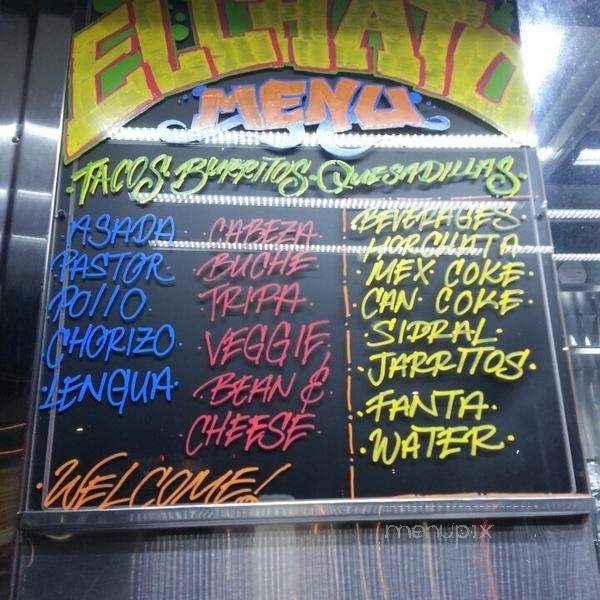 EL CHATO
MENU
TACOS·BURRITOS·QUESADILLAS
ASADA
PASTOR
POLLO
CHORIZO
LENGUA
CABEZA
BUCHE
TRIPA
VEGGIE
BEAN &
CHEESE
BEVERAGES
HORCHATA
MEX COKE
CAN COKE
SIDRAL
JARRITOS
FANTA
WATER
WELCOME!
menupix